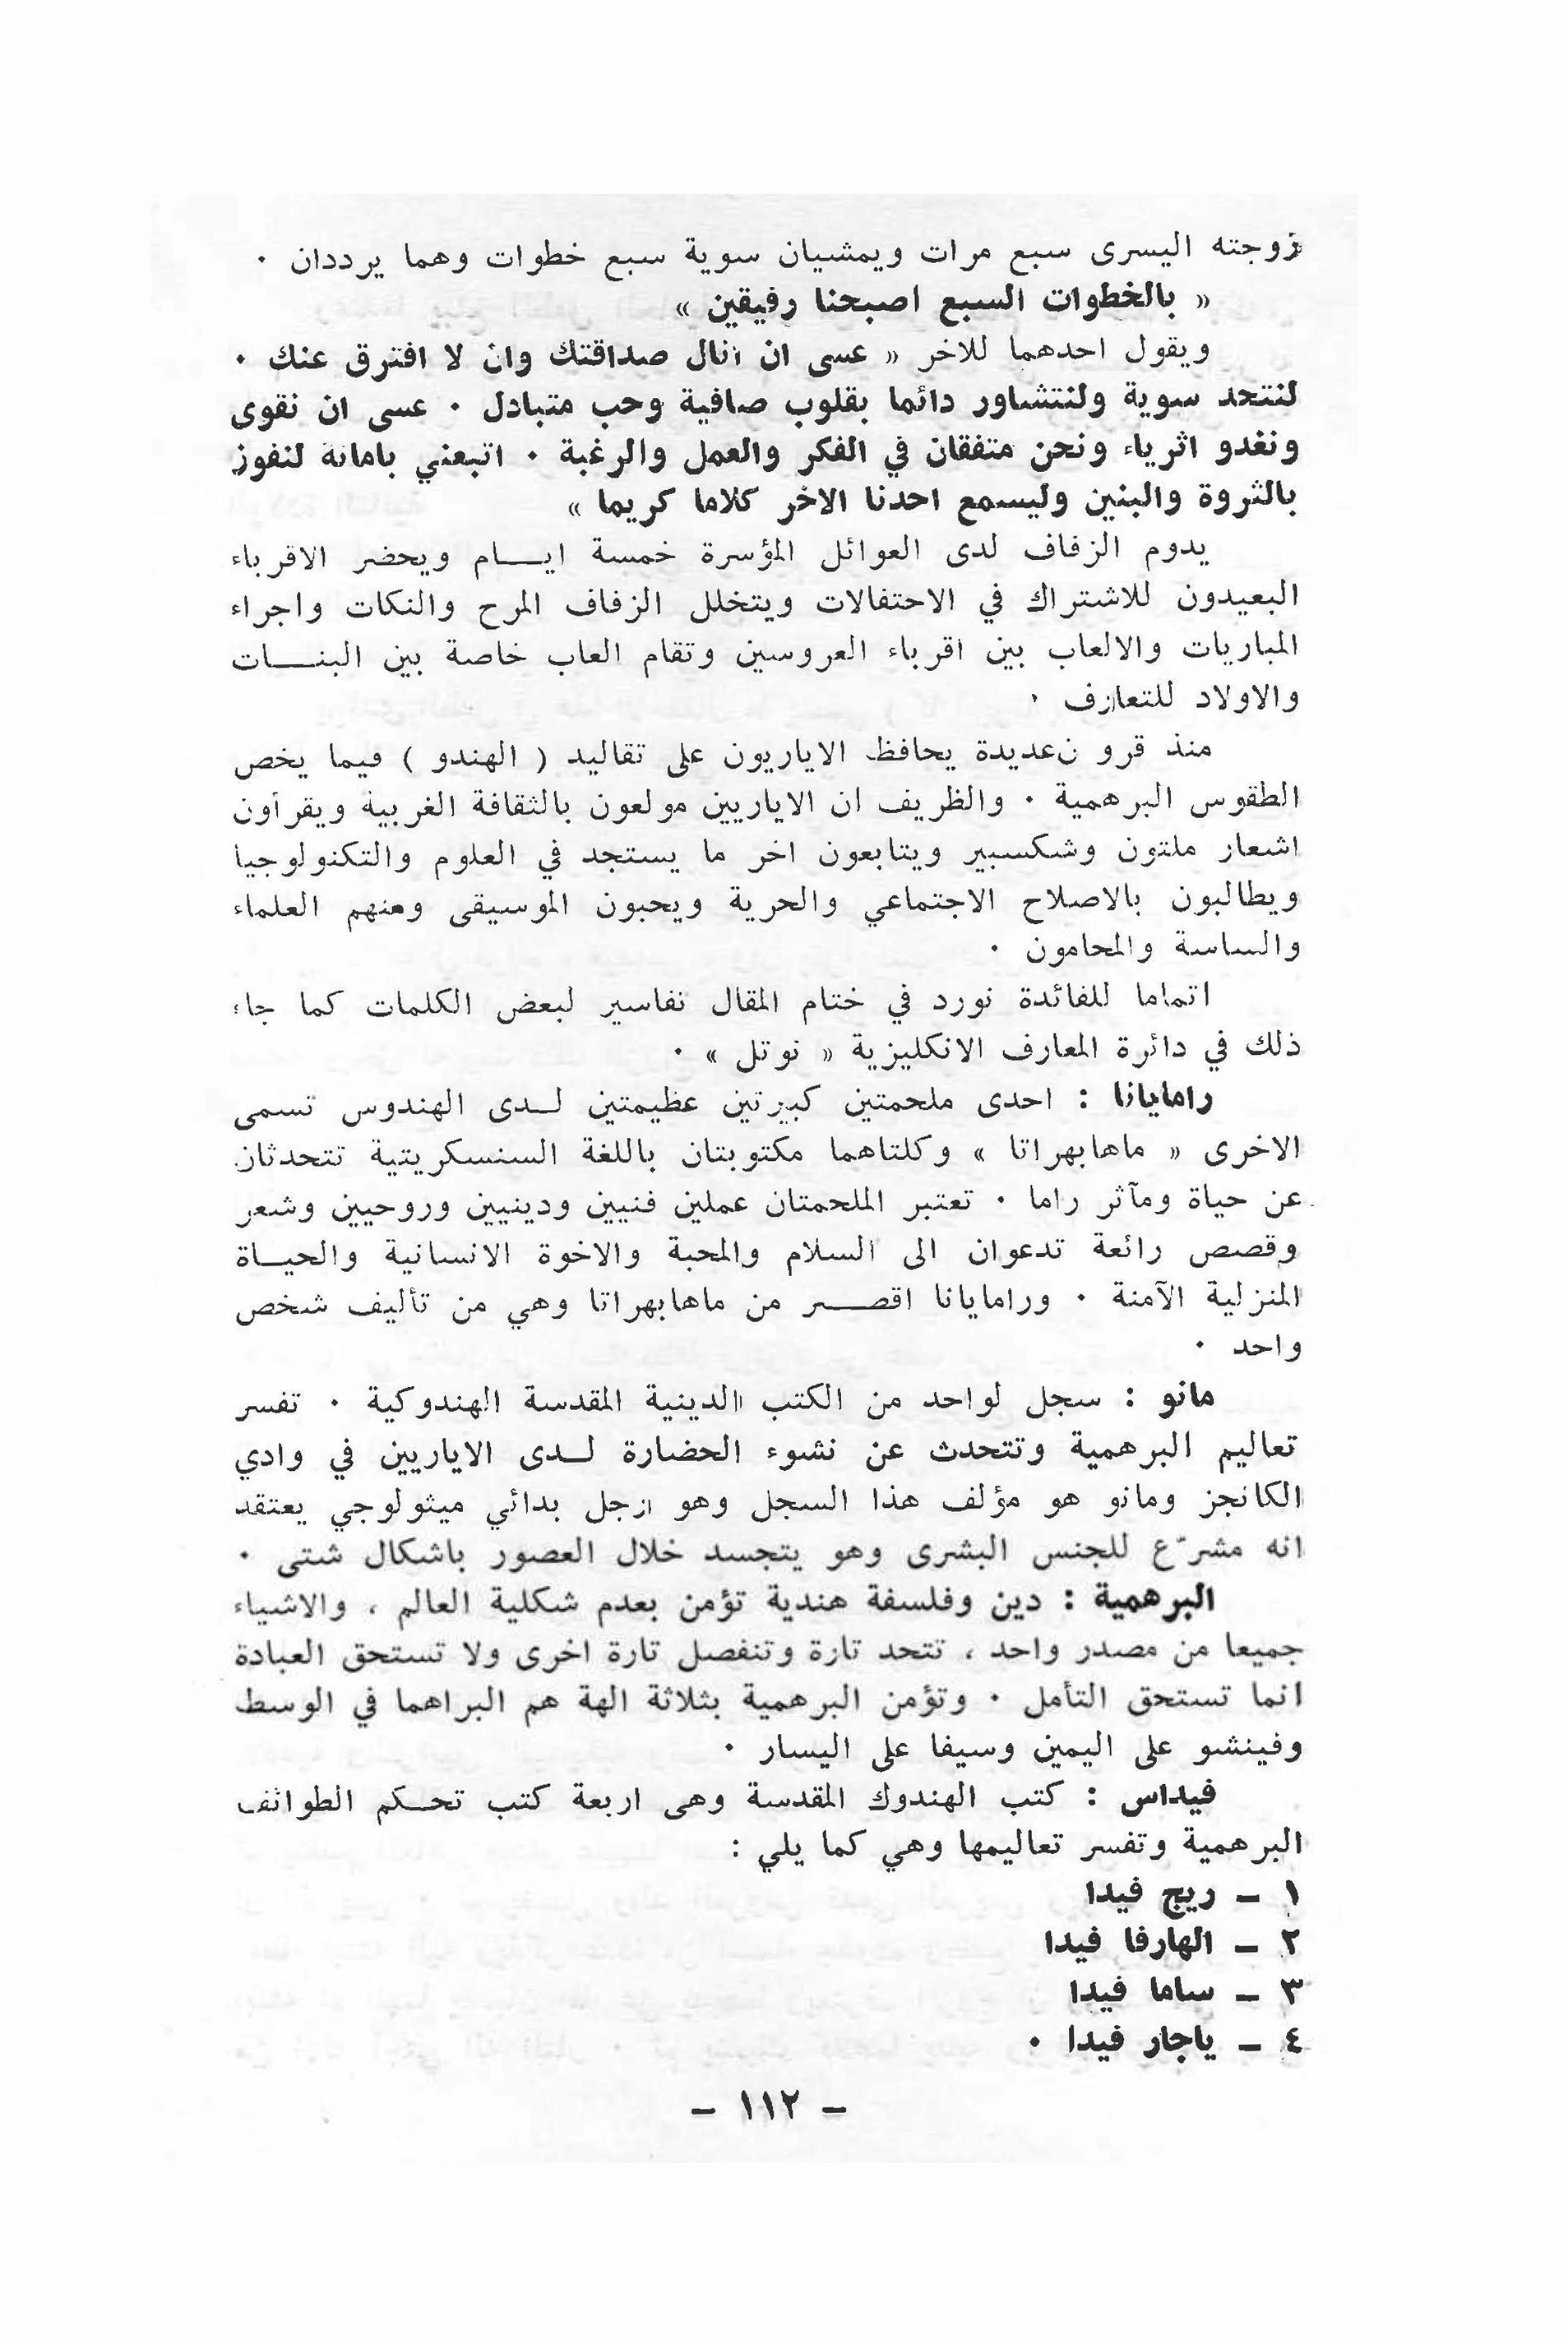 زوجته اليسرى سبع مرات ويمشيان سوية سبع خطوات وهما يرددان ·
« بالخطوات السبع اصبحنا رفيقين »
ويقول احدهما للاخر « عسى ان انال صداقتك وان لا افترق عنك ·
لنتحد سوية ولنتشاور دائما بقلوب صافية وحب متبادل · عسى ان نقوى
ونغدو اثرياء ونحن متفقان في الفكر والعمل والرغبة · اتبعني بامانة لنفوز
بالثروة والبنين وليسمع احدنا الاخر كلاما كريما »
يدوم الزفاف لدى العوائل المؤسرة خمسة ايـــام ويحضر الاقرباء
البعيدون للاشتراك في الاحتفالات ويتخلل الزفاف المرح والنكات واجراء
المباريات والالعاب بين اقرباء العروسين وتقام العاب خاصة بين البنـــات
والاولاد للتعارف ·
منذ قرو نعديدة يحافظ الاياريون على تقاليد ( الهندو ) فيما يخص
الطقوس البرهمية · والظريف ان الاياريين مولعون بالثقافة الغربية ويقرأون
اشعار ملتون وشكسبير ويتابعون اخر ما يستجد في العلوم والتكنولوجيا
ويطالبون بالاصلاح الاجتماعي والحرية ويحبون الموسيقى ومنهم العلماء
والساسة والمحامون ·
اتماما للفائدة نورد في ختام المقال نفاسير لبعض الكلمات كما جاء
ذلك في دائرة المعارف الانكليزية « نوتل » ·
رامايانا : احدى ملحمتين كبيرتين عظيمتين لــدى الهندوس تسمى
الاخرى « ماهابهراتا » وكلتاهما مكتوبتان باللغة السنسكريتية تتحدثان
عن حياة ومآثر راما · تعتبر الملحمتان عملين فنيين ودينيين وروحيين وشعر
وقصص رائعة تدعوان الى السلام والمحبة والاخوة الانسانية والحيــاة
المنزلية الآمنة · ورامايانا اقصـــر من ماهابهراتا وهي من تأليف شخص
واحد ·
مانو : سجل لواحد من الكتب الدينية المقدسة الهندوكية · تفسر
تعاليم البرهمية وتتحدث عن نشوء الحضارة لــدى الاياريين في وادي
الكانجز ومانو هو مؤلف هذا السجل وهو ارجل بدائي ميثولوجي يعتقد
انه مشرّع للجنس البشرى وهو يتجسد خلال العصور باشكال شتى ·
البرهمية : دين وفلسفة هندية تؤمن بعدم شكلية العالم ، والاشياء
جميعا من مصدر واحد ، تتحد تارة وتنفصل تارة اخرى ولا تستحق العبادة
انما تستحق التأمل · وتؤمن البرهمية بثلاثة الهة هم البراهما في الوسط
وفينشو على اليمين وسيفا على اليسار ·
فيداس : كتب الهندوك المقدسة وهى اربعة كتب تحــكم الطوائف
البرهمية وتفسر تعاليمها وهي كما يلي :
١ – ريج فيدا
٢ – الهارفا فيدا
٣ – ساما فيدا
٤ – ياجار فيدا ·
– ١١٢ –